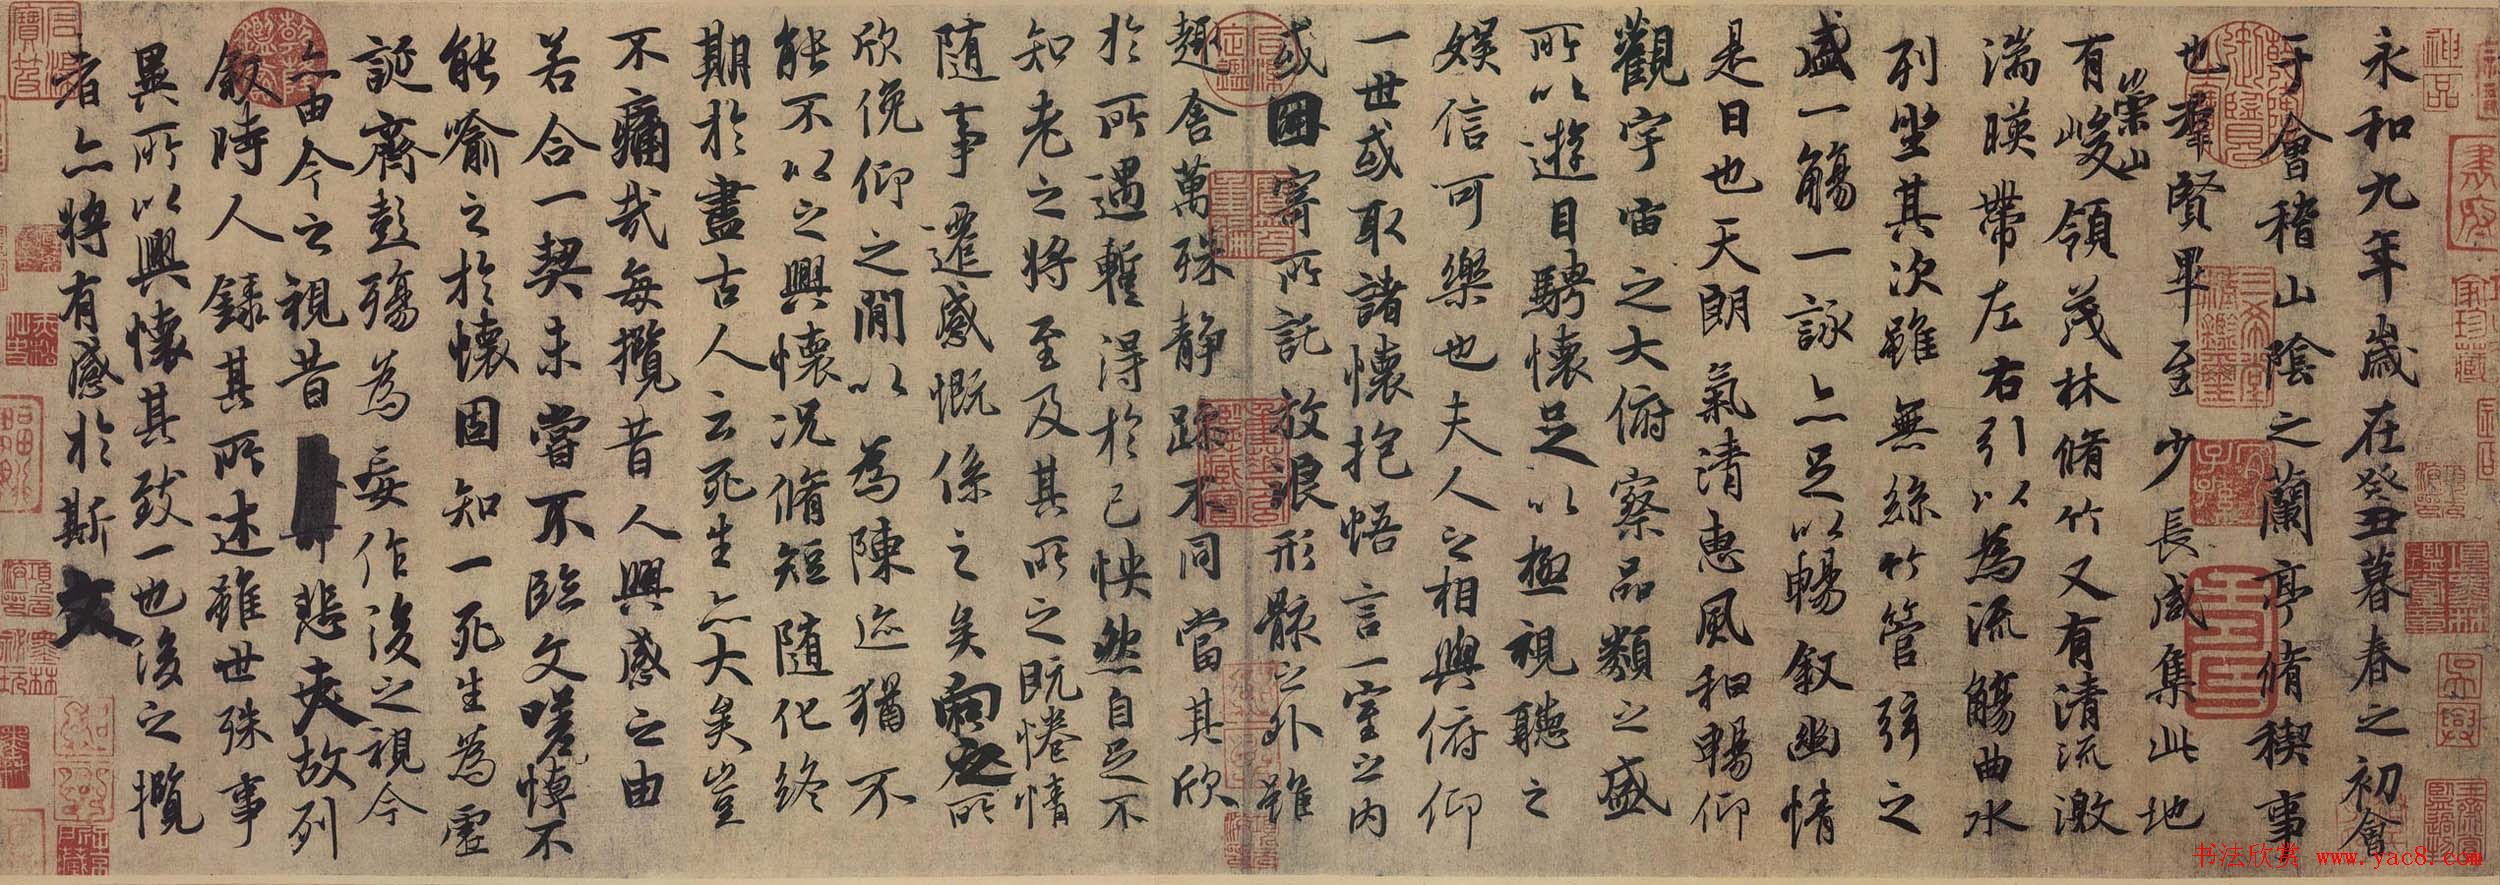 永和九年歲在癸丑暮春之初會
于會稽山陰之蘭亭脩稧事
也羣賢畢至少長咸集此地
有崇山峻領茂林脩竹又有清流激
湍暎帶左右引以為流觴曲水
列坐其次雖無絲竹管弦之
盛一觴一詠亦足以暢叙幽情
是日也天朗氣清惠風和暢仰
觀宇宙之大俯察品類之盛
所以遊目騁懷足以極視聽之
娛信可樂也夫人之相與俯仰
一世或取諸懷抱悟言一室之內
或因寄所託放浪形骸之外雖
趣舍萬殊静躁不同當其欣
於所遇暫得於己怏然自足不
知老之將至及其所之既惓情
随事遷感慨係之矣向之所
欣俛仰之閒以為陳迹猶不
能不以之興懷況脩短随化終
期於盡古人云死生亦大矣豈
不痛哉每攬昔人興感之由
若合一契未嘗不臨文嗟悼不
能喻之於懷固知一死生為虛
誕齊彭殤為妄作後之視今
亦由今之視昔悲夫故列
敘時人錄其所述雖世殊事
異所以興懷其致一也後之攬
者亦將有感於斯文
神品
书法欣赏 www.yac8.com